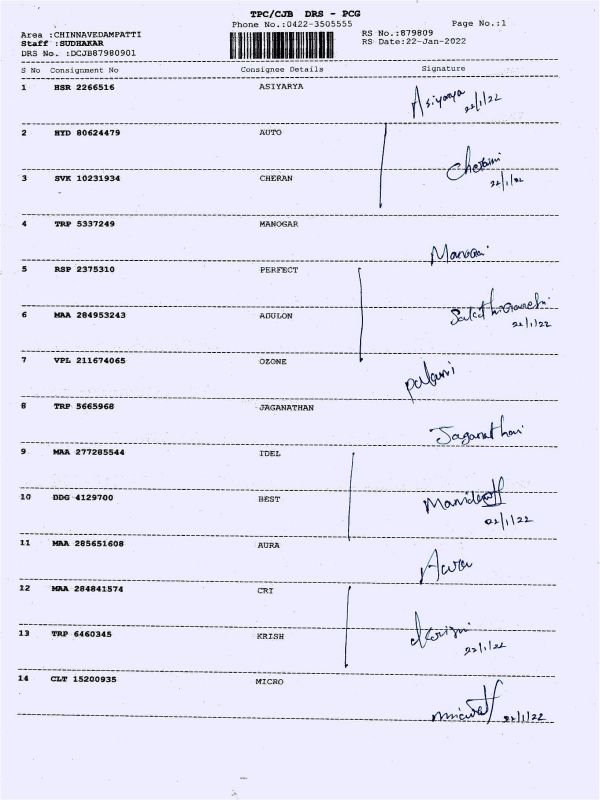 TPC/CJB DRS - PCG
Phone No.:0422-3505555
Page No.:1
Area :CHINNAVEDAMPATTI
RS No.:879809
Staff :SUDHAKAR
RS Date:22-Jan-2022
DRS No. :DCJB87980901
S No Consignment No Consignee Details Signature
1 HSR 2266516 ASIYARYA
Asiyarya
22/1/22
2 HYD 80624479 AUTO
3 SVK 10231934 CHERAN
22/1/22
4 TRP 5337249 MANOGAR
5 RSP 2375310 PERFECT
6 MAA 284953243 ADULON
22/1/22
7 VPL 211674065 OZONE
8 TRP 5665968 JAGANATHAN
Jaganathan
9 MAA 277285544 IDEL
10 DDG 4129700 BEST
22/1/22
11 MAA 285651608 AURA
Aura
12 MAA 284841574 CRI
13 TRP 6460345 KRISH
22/1/22
14 CLT 15200935 MICRO
22/1/22